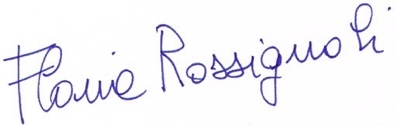 Flavia Rossignoli